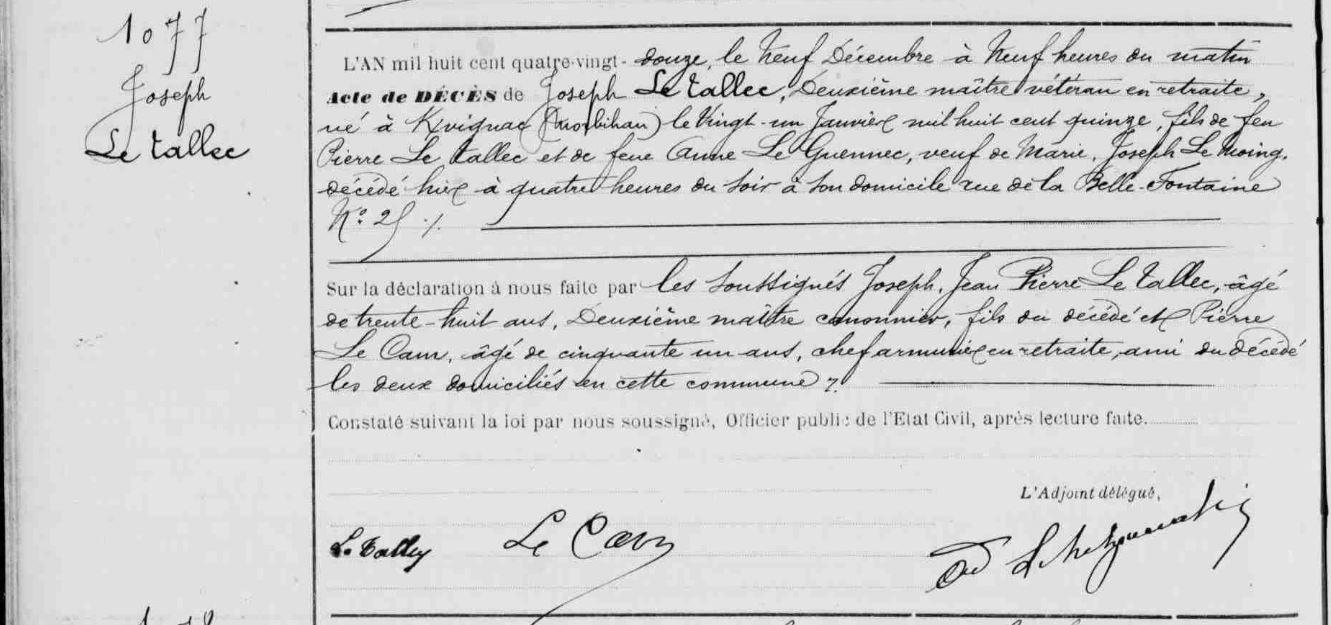 1077
Joseph
Le Tallec
L'AN mil huit cent quatre-vingt-douze, le Neuf Décembre à Neuf heures du matin
Acte de DÉCÈS de Joseph Le Tallec, Deuxième maître vétéran en retraite,
né à Kvignac (Morbihan) le Vingt-un Janvier mil huit cent quinze, fils de feu
Pierre Le Tallec et de feue Anne Le Guennec, veuf de Marie, Joseph Le Moing.
décédé hier à quatre heures du soir à son domicile rue de la Belle-Fontaine
N° 25 ./.
Sur la déclaration à nous faite par les soussignés Joseph, Jean Pierre Le Tallec, âgé
de trente-huit ans, Deuxième maître canonnier, fils du décédé et Pierre
Le Cam, âgé de cinquante un ans, chef armurier en retraite, ami du décédé
les deux domiciliés en cette commune ./.
Constaté suivant la loi par nous soussigné, Officier public de l'Etat Civil, après lecture faite.
L'Adjoint délégué,
Le Tallec Le Cam